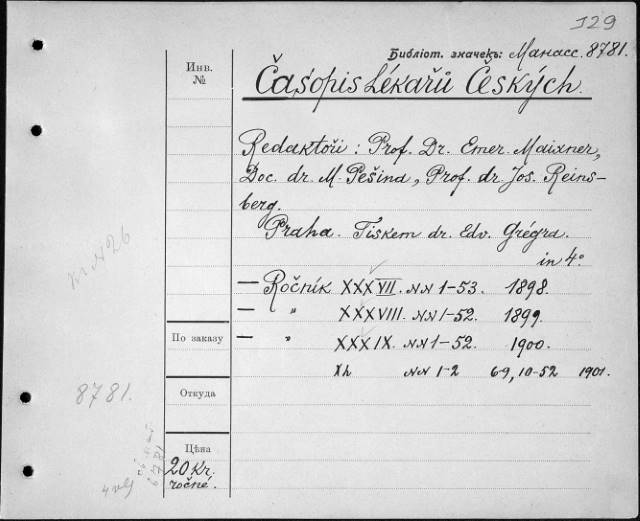 129
Библіот. значекъ: Манасс. 8781.
Инв.
№
Časopis Lékařů Českých.
Redaktoři: Prof. Dr. Emer. Maixner,
Doc. dr. M. Pešina, Prof. dr. Jos. Reins-
berg.
Praha. Tiskem dr. Edv. Grégra.
in 4°
— Ročník XXXVII. NN 1-53. 1898.
— „ XXXVIII. NN 1-52. 1899.
— „ XXXIX. NN 1-52. 1900.
Xh NN 1-2 6-9, 10-52 1901.
По заказу
Откуда
Цѣна
20 Kr.
ročné.
N 26
8781.